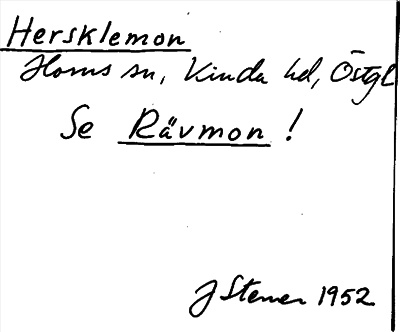 Hersklemon
Horns sn, Kinda hd, Östgl
Se Rävmon !
J Stener 1952